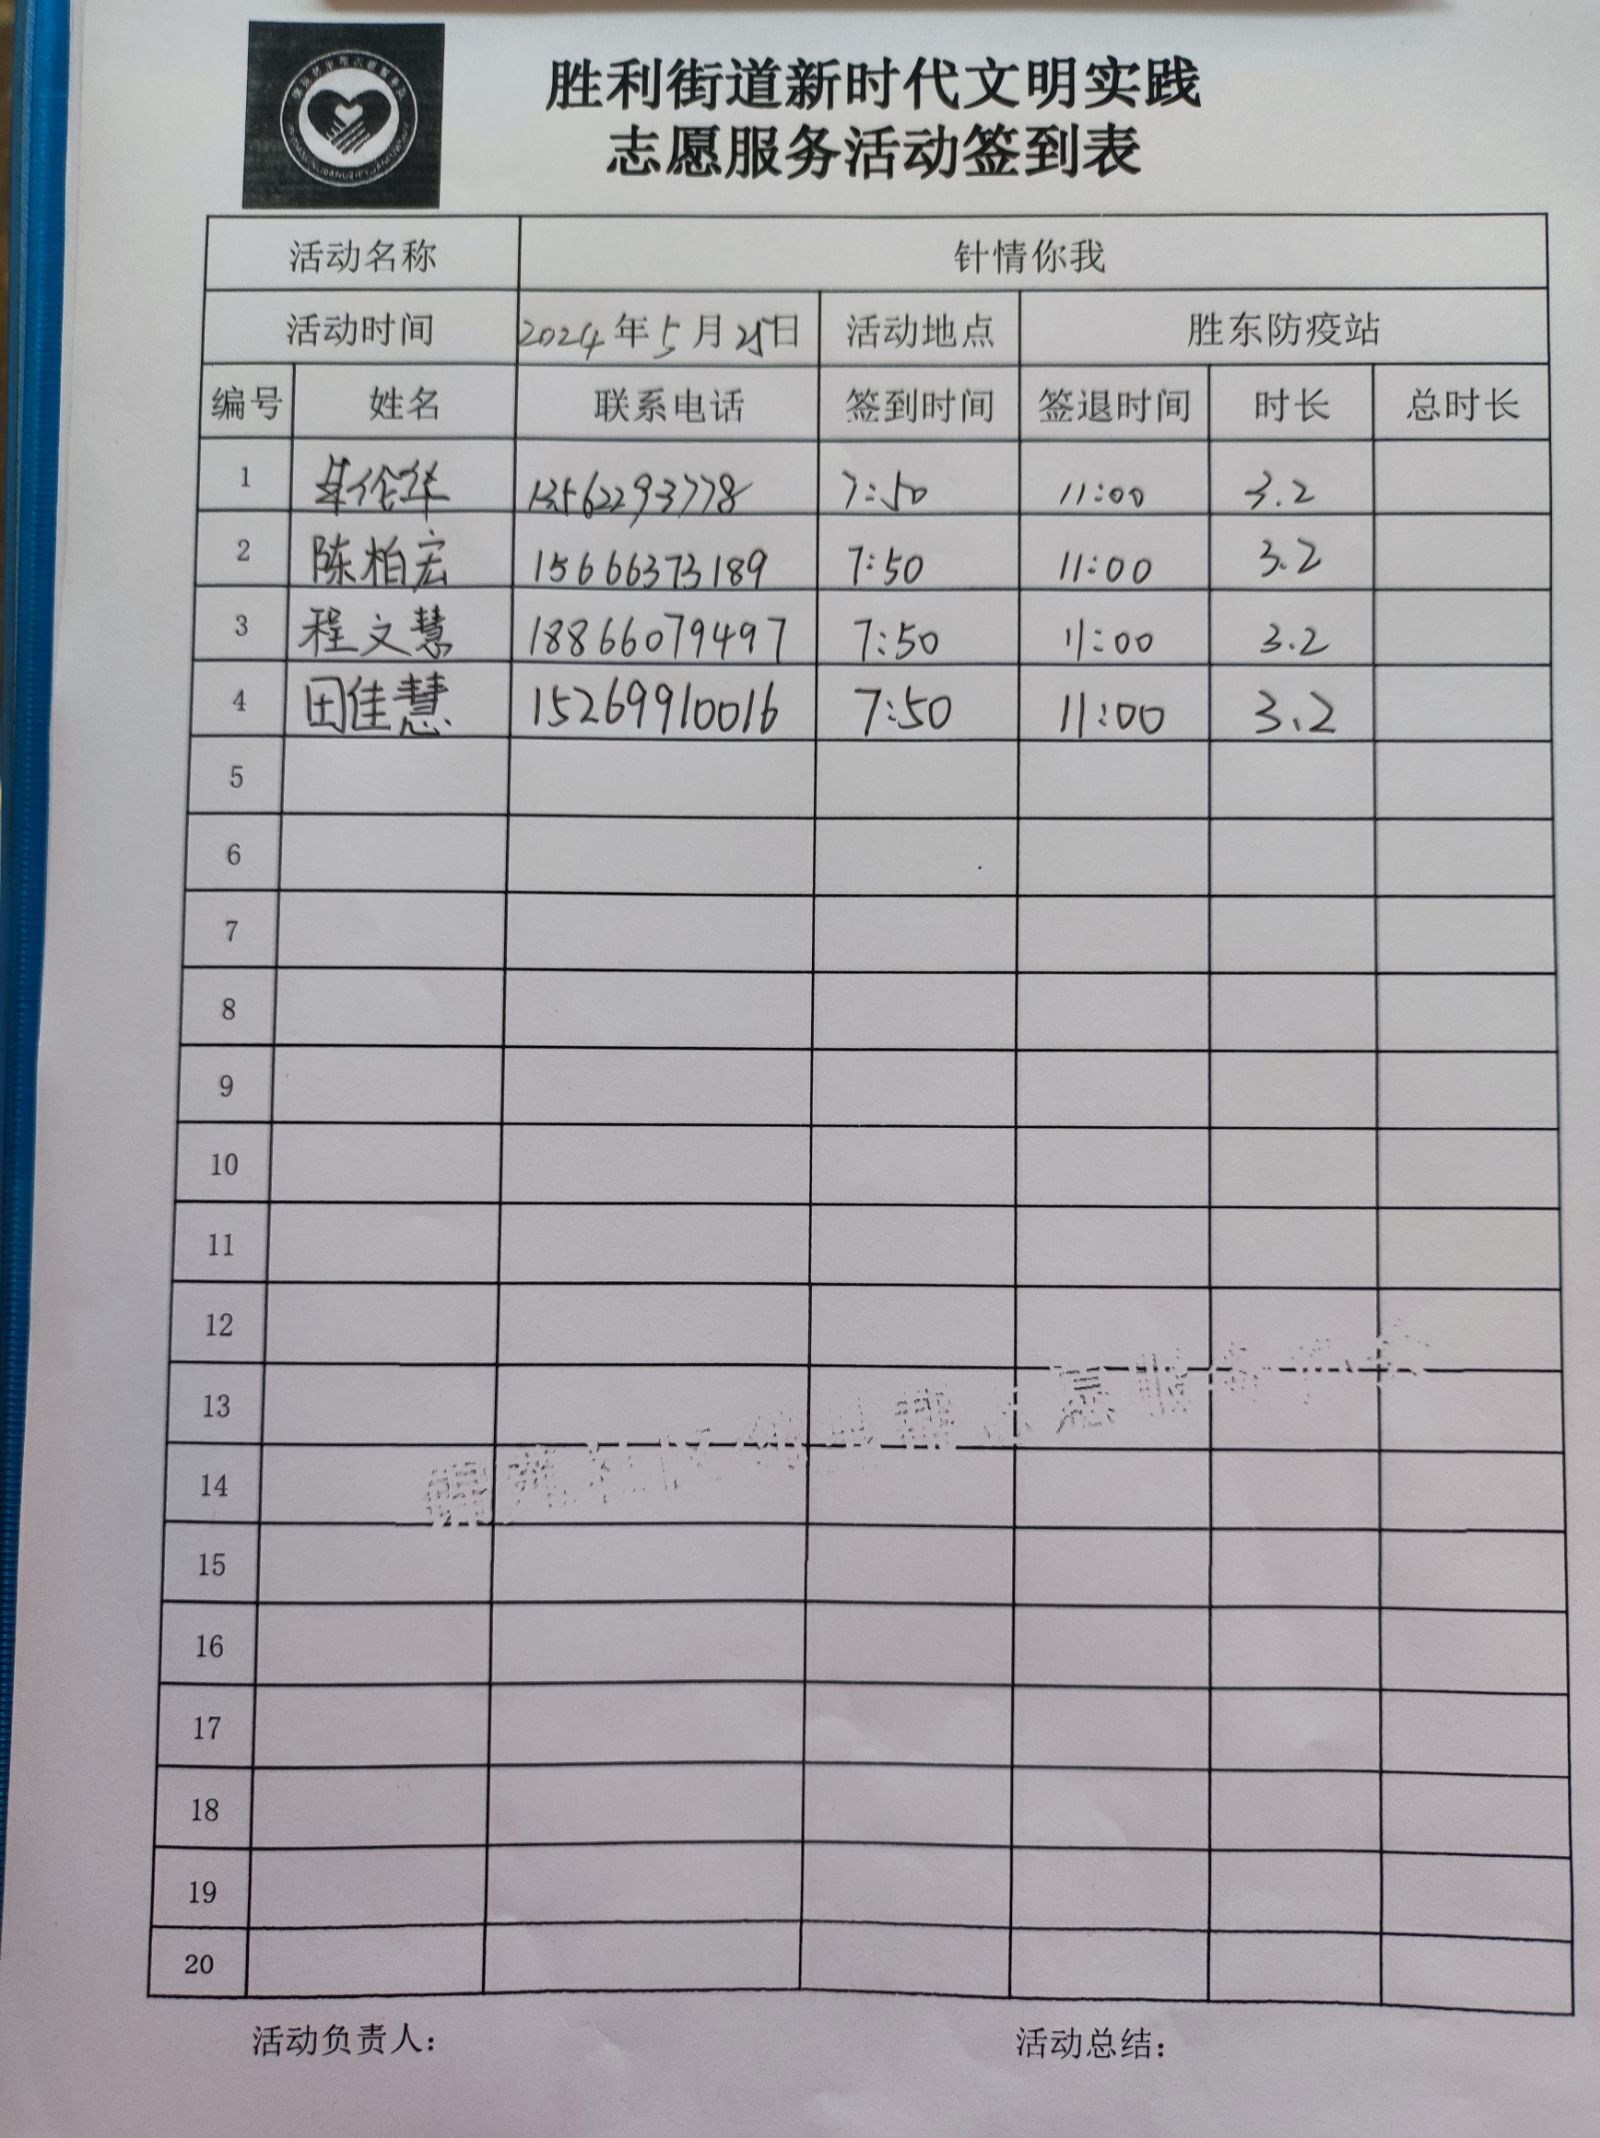 胜利街道新时代文明实践
志愿服务活动签到表
活动名称 针情你我
活动时间 2024年5月25日 活动地点 胜东防疫站
编号 姓名 联系电话 签到时间 签退时间 时长 总时长
1 伦华 13562293778 7:50 11:00 3.2
2 陈柏宏 15666373189 7:50 11:00 3.2
3 程文慧 18866079497 7:50 11:00 3.2
4 田佳慧 15269910016 7:50 11:00 3.2
5
6
7
8
9
10
11
12
13
14
15
16
17
18
19
20
活动负责人： 活动总结：